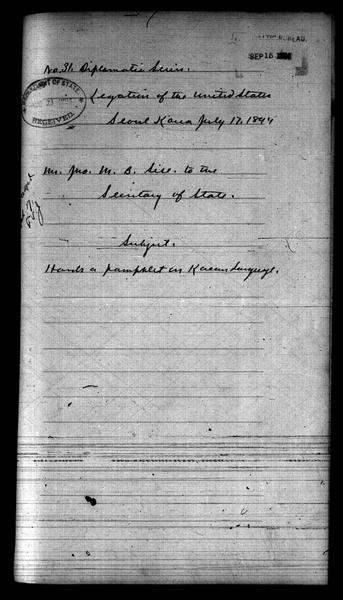 BUREAU,
SEP 15
No. 31. Diplomatic Series.
DEPARTMENT OF STATE
RECEIVED
Legation of the United States
Seoul Korea July 17, 1894
Mr. Jno. M. B. Sill. to the
Secretary of State.
Subject.
Hands a pamphlet on Korean Language.